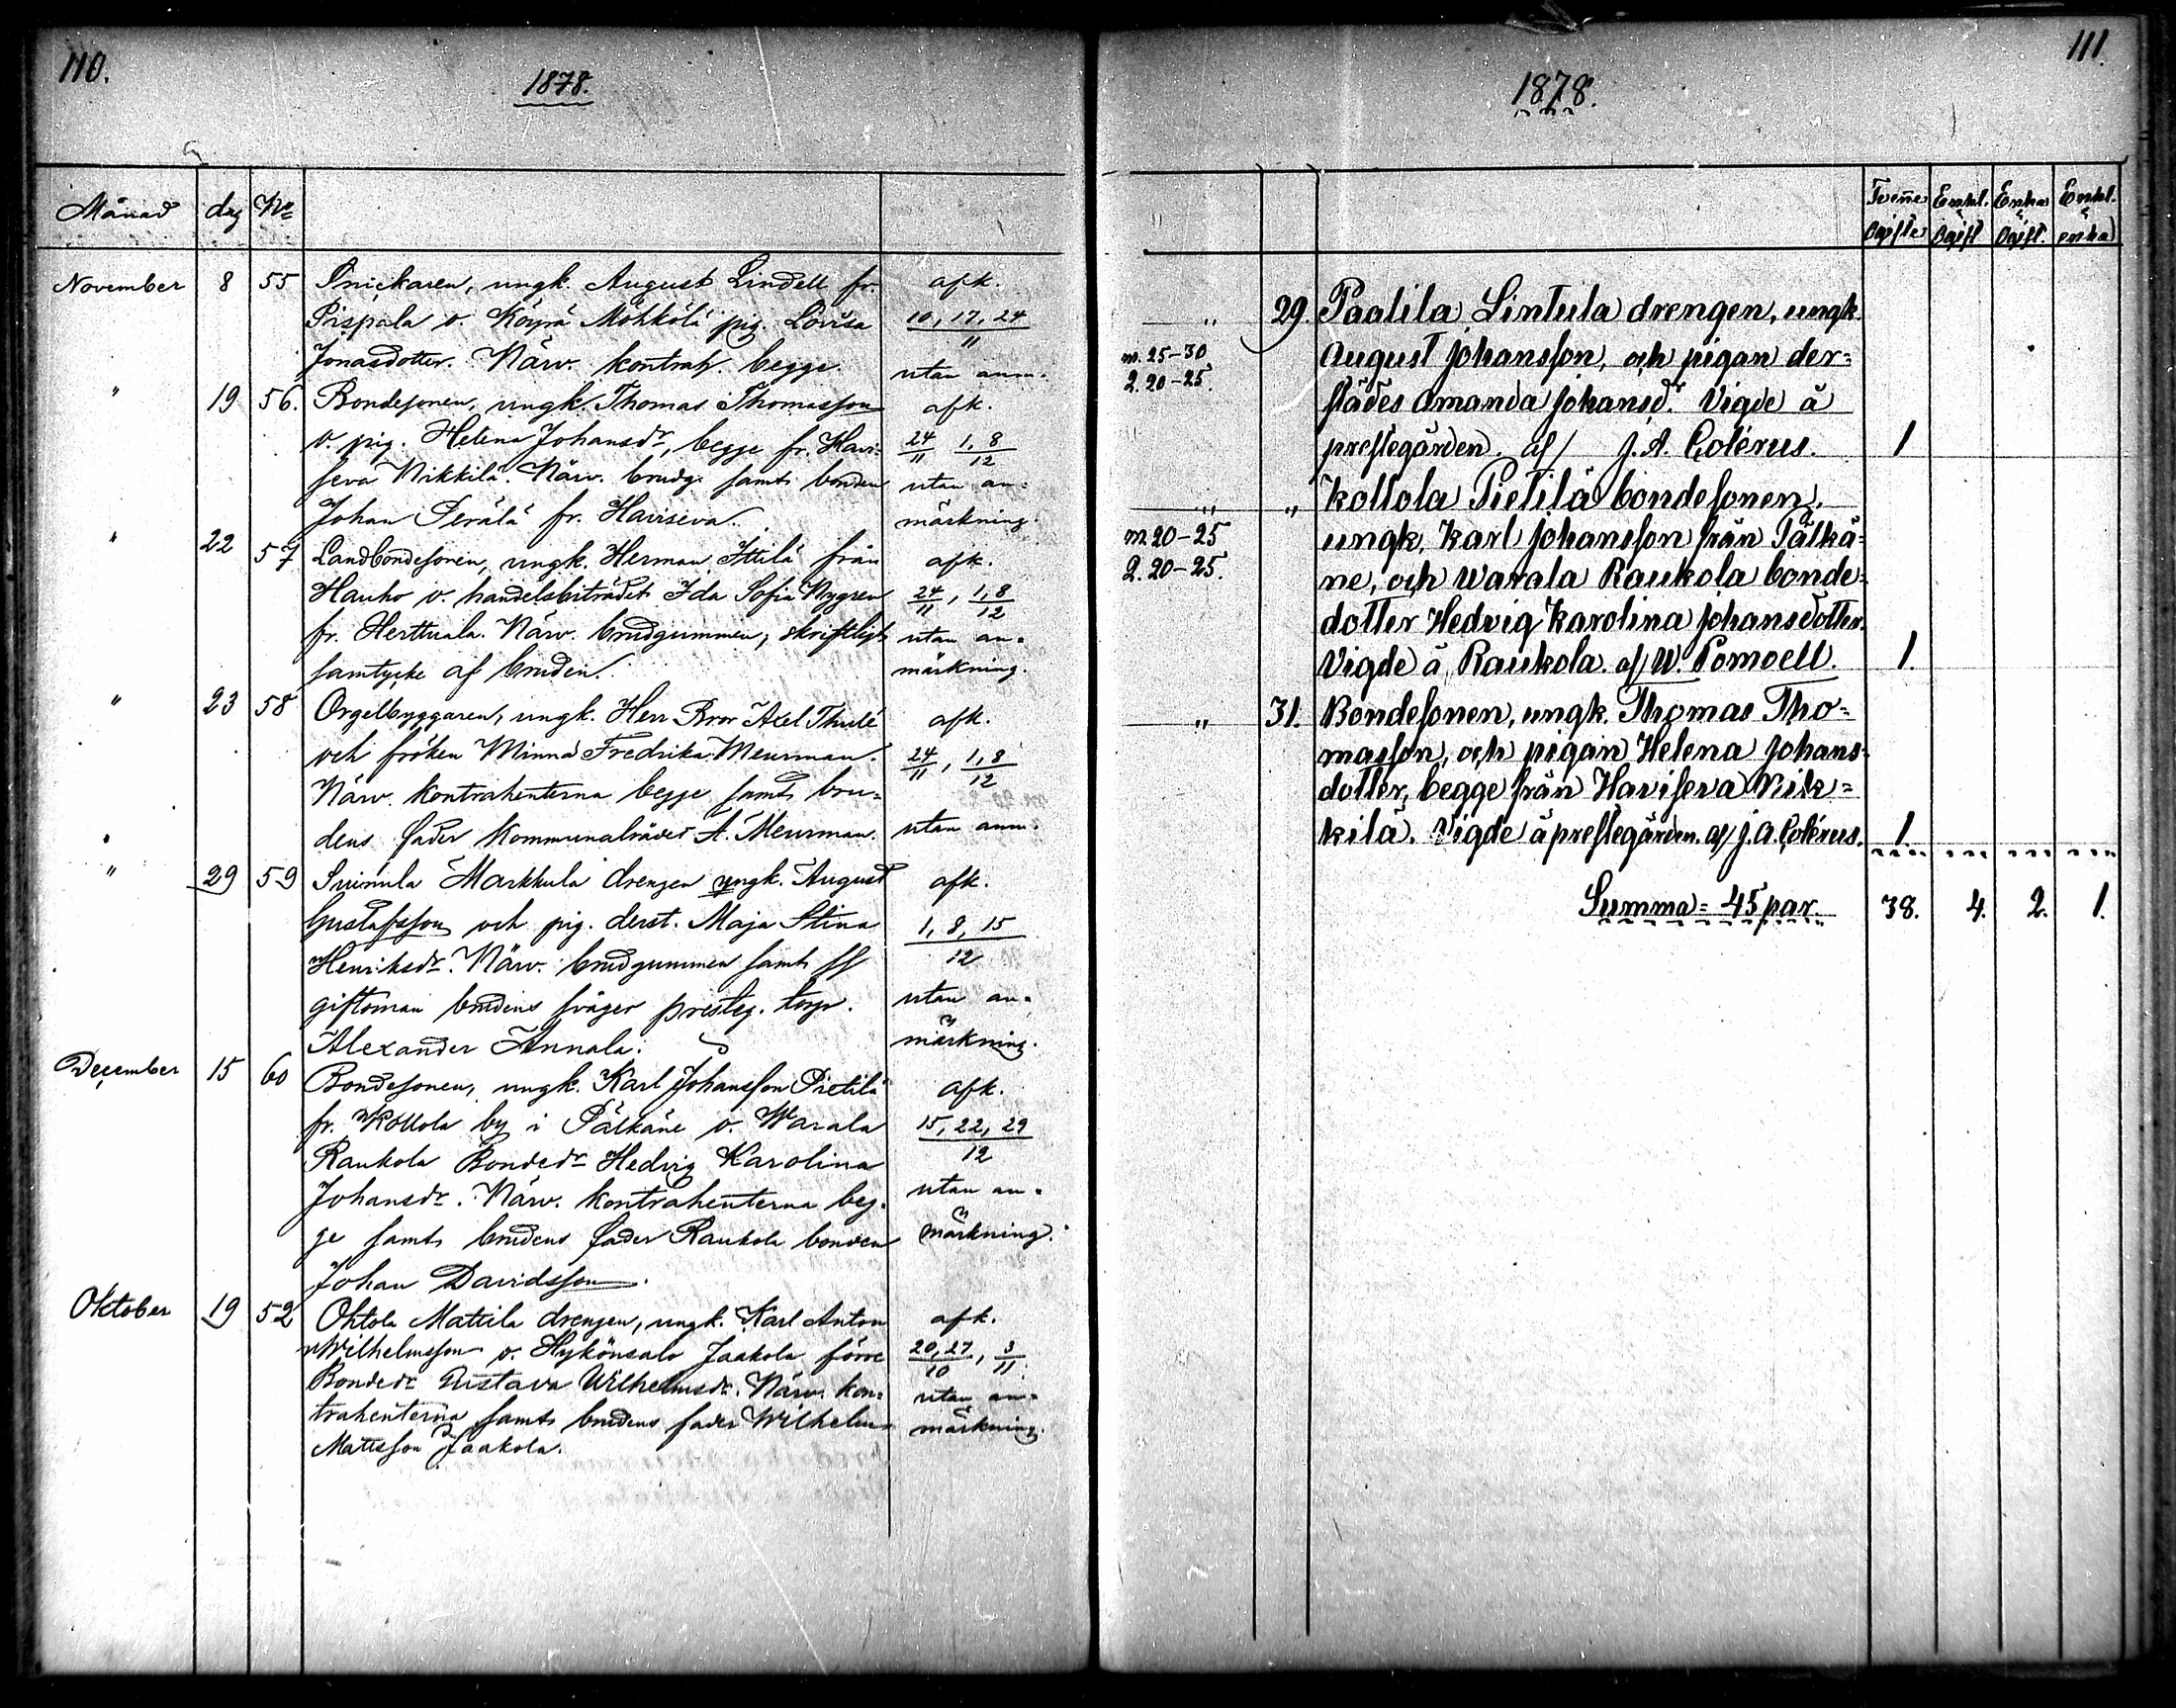 110.
1878.
Månad dag No
November 8 55 Snickaren, ungk. August Lindell fr. afk.
Pispala o. Köyrä Möhkölä pig. Lovisa 10, 17, 24
Jonasdotter. Närv. kontrah. begge. 11 utan anm.
" 19 56. Bondesonen, ungk. Thomas Thomasson afk.
o. pig. Helena Johansdr, begge fr. Havi- 24/11 1,8/12
seva Nikkilä. Närv. brudg. samt bonden utan an-
Johan Perälä fr. Haviseva. märkning.
" 22 57 Landbondesonen, ungk. Herman Ittilä från afk.
Hauho o. handelsbiträdet Ida Sofia Nygren 24/11, 1,8/12
fr. Herttuala. Närv. brudgummen, skriftligt utan an-
samtycke af bruden. märkning.
" 23 58 Orgelbyggaren, ungk. Herr Bror Axel Thulé afk.
och fröken Minna Fredrika Meurman. 24/11, 1,8/12
Närv. kontrahenterna begge samt bru-
dens fader Kommunalrådet A. Meurman. utan anm.
" 29 59 Suinula Markkula drengen ungk. August afk.
Gustafsson och pig. derst. Maja Stina 1, 8, 15
Henriksdr. Närv. brudgummen samt 12
giftoman brudens svåger presteg. torp. utan an-
Alexander Annala. märkning.
December 15 60 Bondesonen, ungk. Karl Johansson Pietilä afk.
fr. Kollola by i Pälkäne o. Warala 15, 22, 29
Raukola Bondedr Hedvig Karolina 12
Johansdr. Närv. kontrahenterna beg- utan an-
ge samt brudens fader Raukola bonden märkning.
Johan Davidsson.
Oktober 19 52 Ohtola Mattila drengen, ungk. Karl Anton afk.
Wilhelmsson o. Hykönsalo Jaakola förre 20,27/10, 3/11.
Bondedr Gustava Wilhelmsdr. Närv. kon- utan an-
trahenterna samt brudens fader Wilhelm märkning.
Mattsson Jaakola.
111.
1878.
Tvenne Ogifte Enkl. o Ogift Enka o Ogift. Enkl. o enka
" 29. Paalila Lintula drengen, ungk.
m. 25-30 August Johansson, och pigan der-
q. 20-25. städes Amanda Johansdr. Vigde å
prestegården. af J. A. Colérus. 1
" " Kollola Pietilä bondesonen,
m. 20-25 ungk. Karl Johansson från Pälkä-
q. 20-25. ne, och Warala Raukola bonde-
dotter Hedvig Karolina Johansdotter.
Vigde å Raukola. af W. Pomoell. 1.
" 31. Bondesonen, ungk. Thomas Tho-
masson, och pigan Helena Johans-
dotter, begge från Haviseva Nik-
kilä. Vigde å prestegården. af J. A. Colérus. 1.
Summa = 45 par. 38. 4. 2. 1.